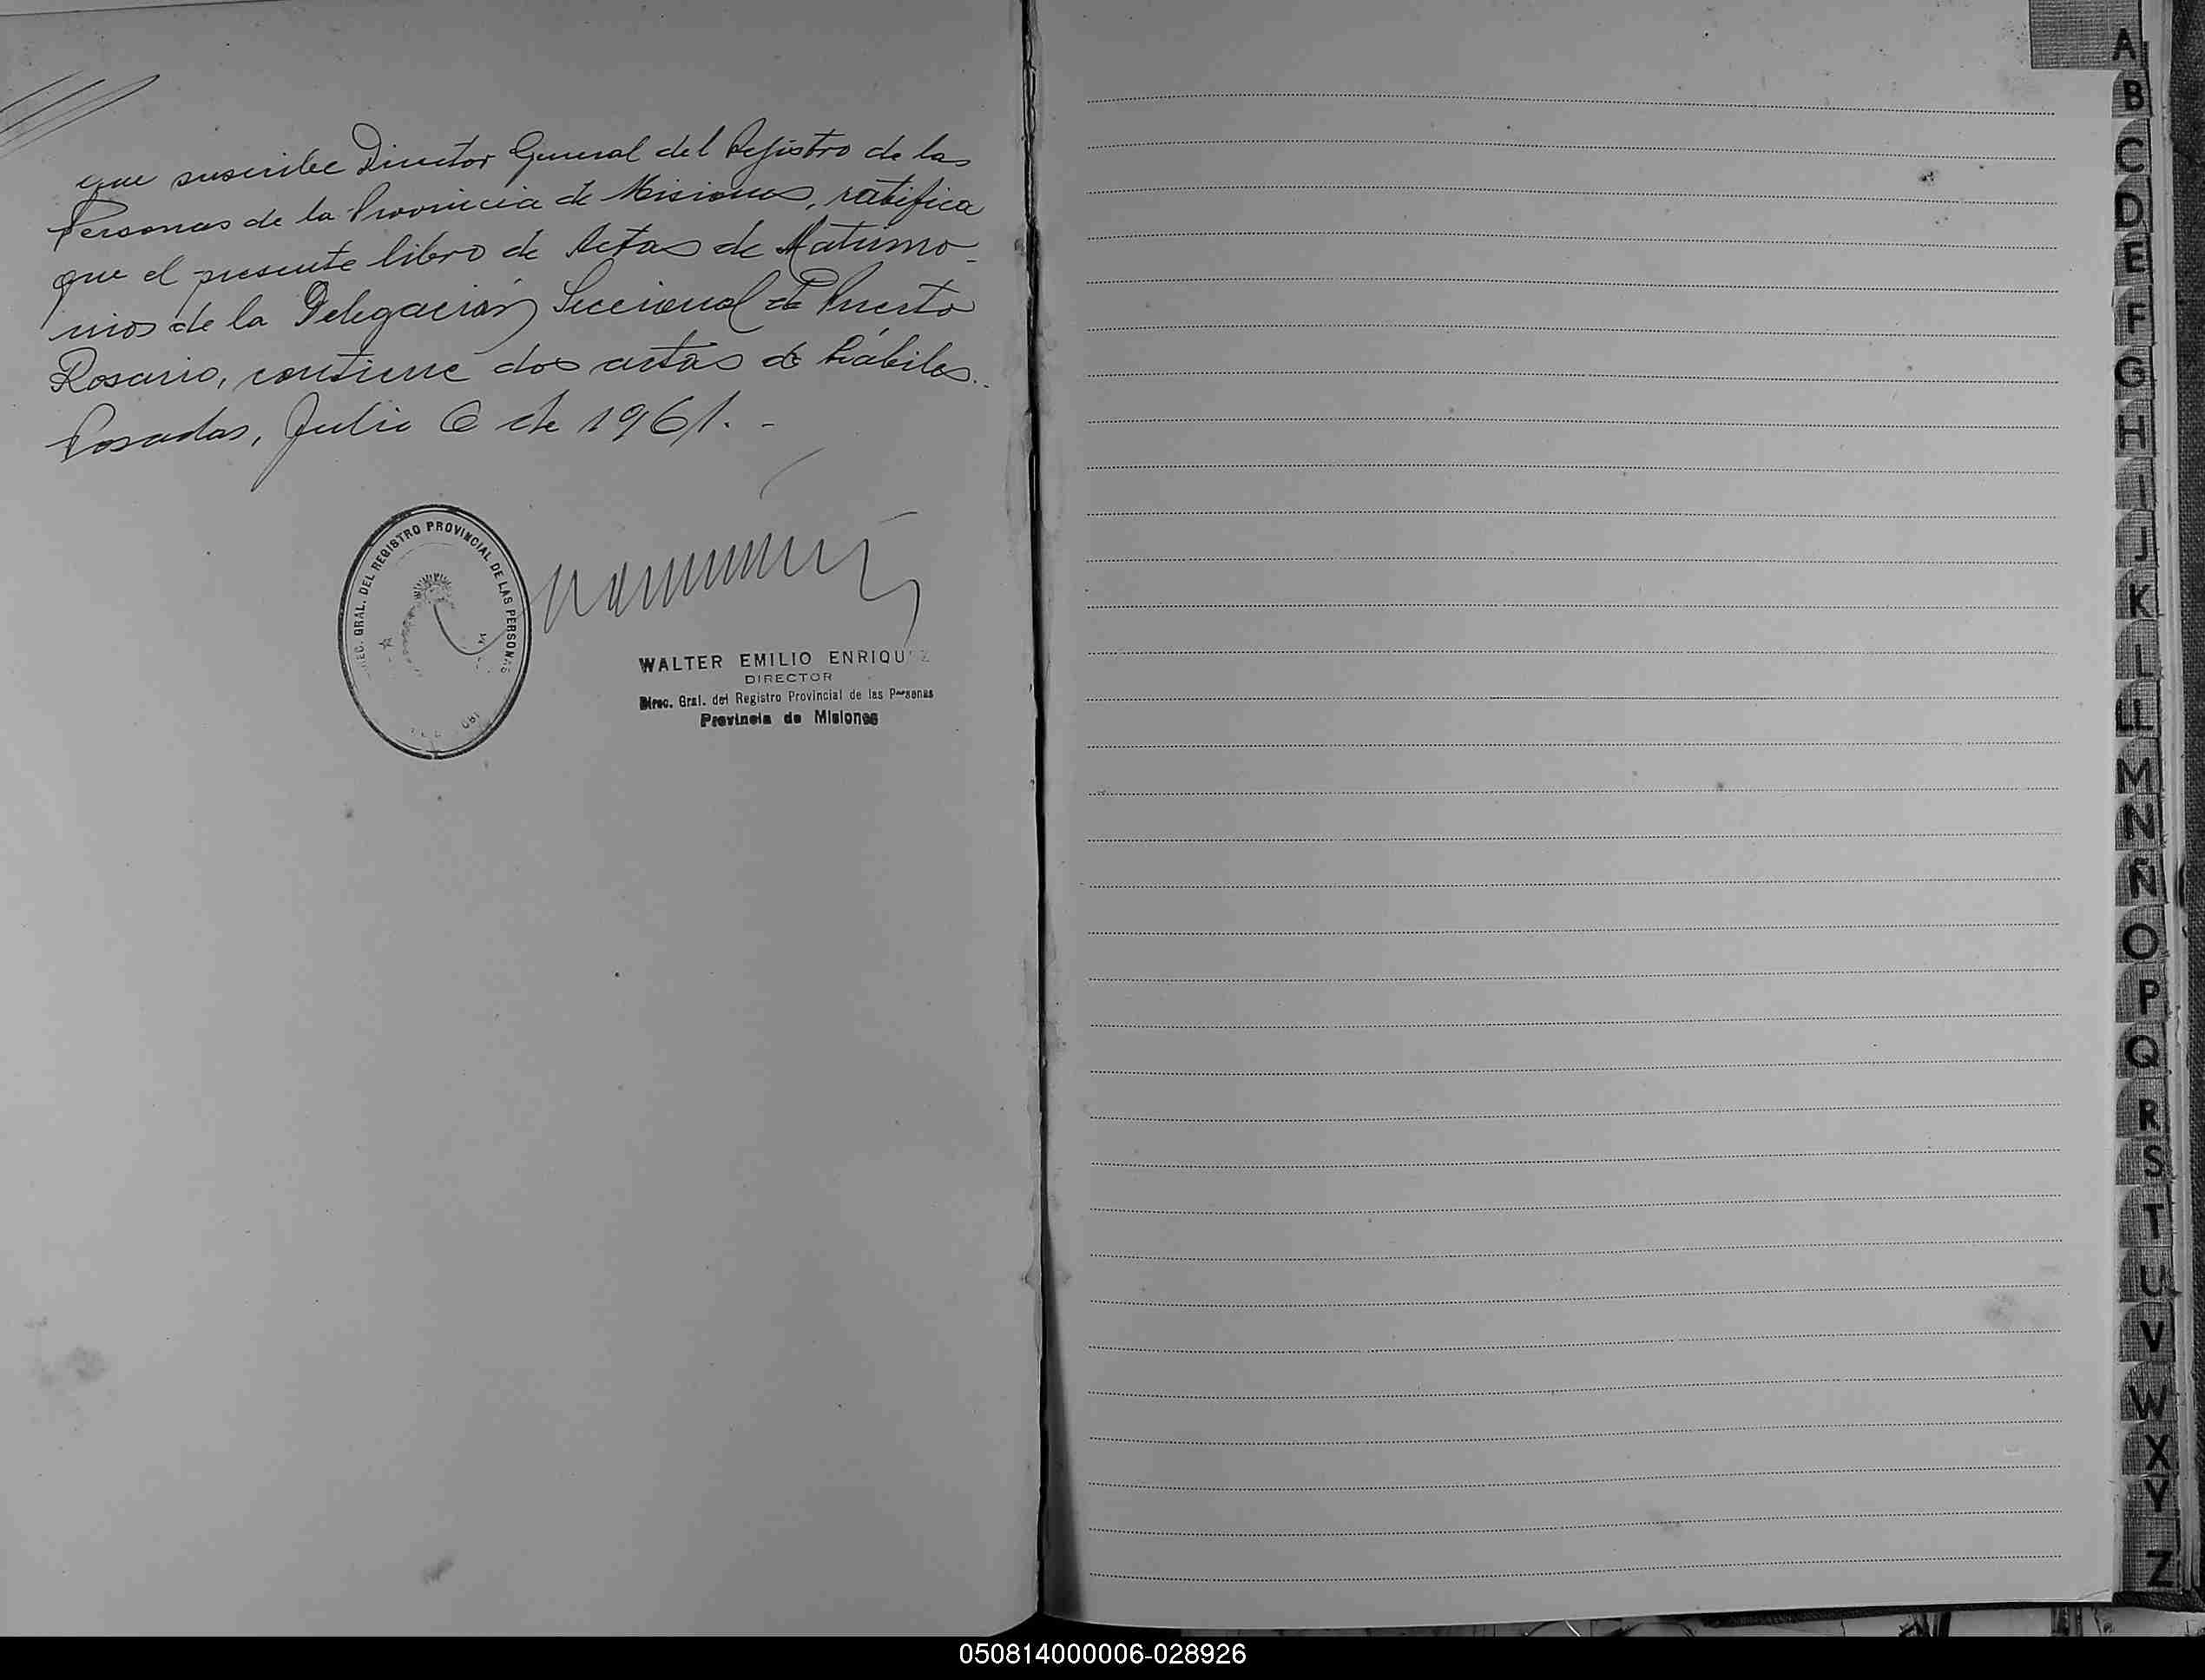 que suscribe Director General del Registro de las
Personas de la Provincia de Misiones, ratifica
que el presente libro de Actas de Matrimo-
nios de la Delegación Seccional de Puerto
Rosario, contiene dos actas de hábiles..
Posadas, Julio 6 de 1961.-
REC. GRAL. DEL REGISTRO PROVINCIAL DE LAS PERSONAS
WALTER EMILIO ENRIQUEZ
DIRECTOR
Direc. Gral. del Registro Provincial de las Personas
Provincia de Misiones
A
B
C
D
E
F
G
H
I
J
K
L
LL
M
N
Ñ
O
P
Q
R
S
T
U
V
W
X
Y
Z
050814000006-028926